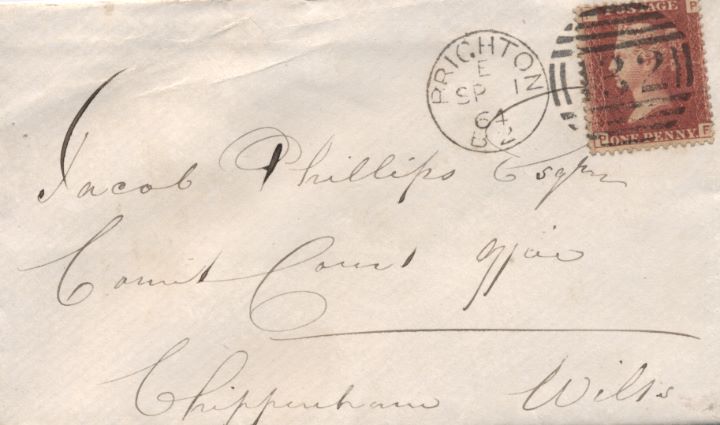 POSTAGE P
BRIGHTON
E
SP 1
64
B 2
132
P ONE PENNY F
Jacob Phillips Esqre
County Court Office
Chippenham Wilts